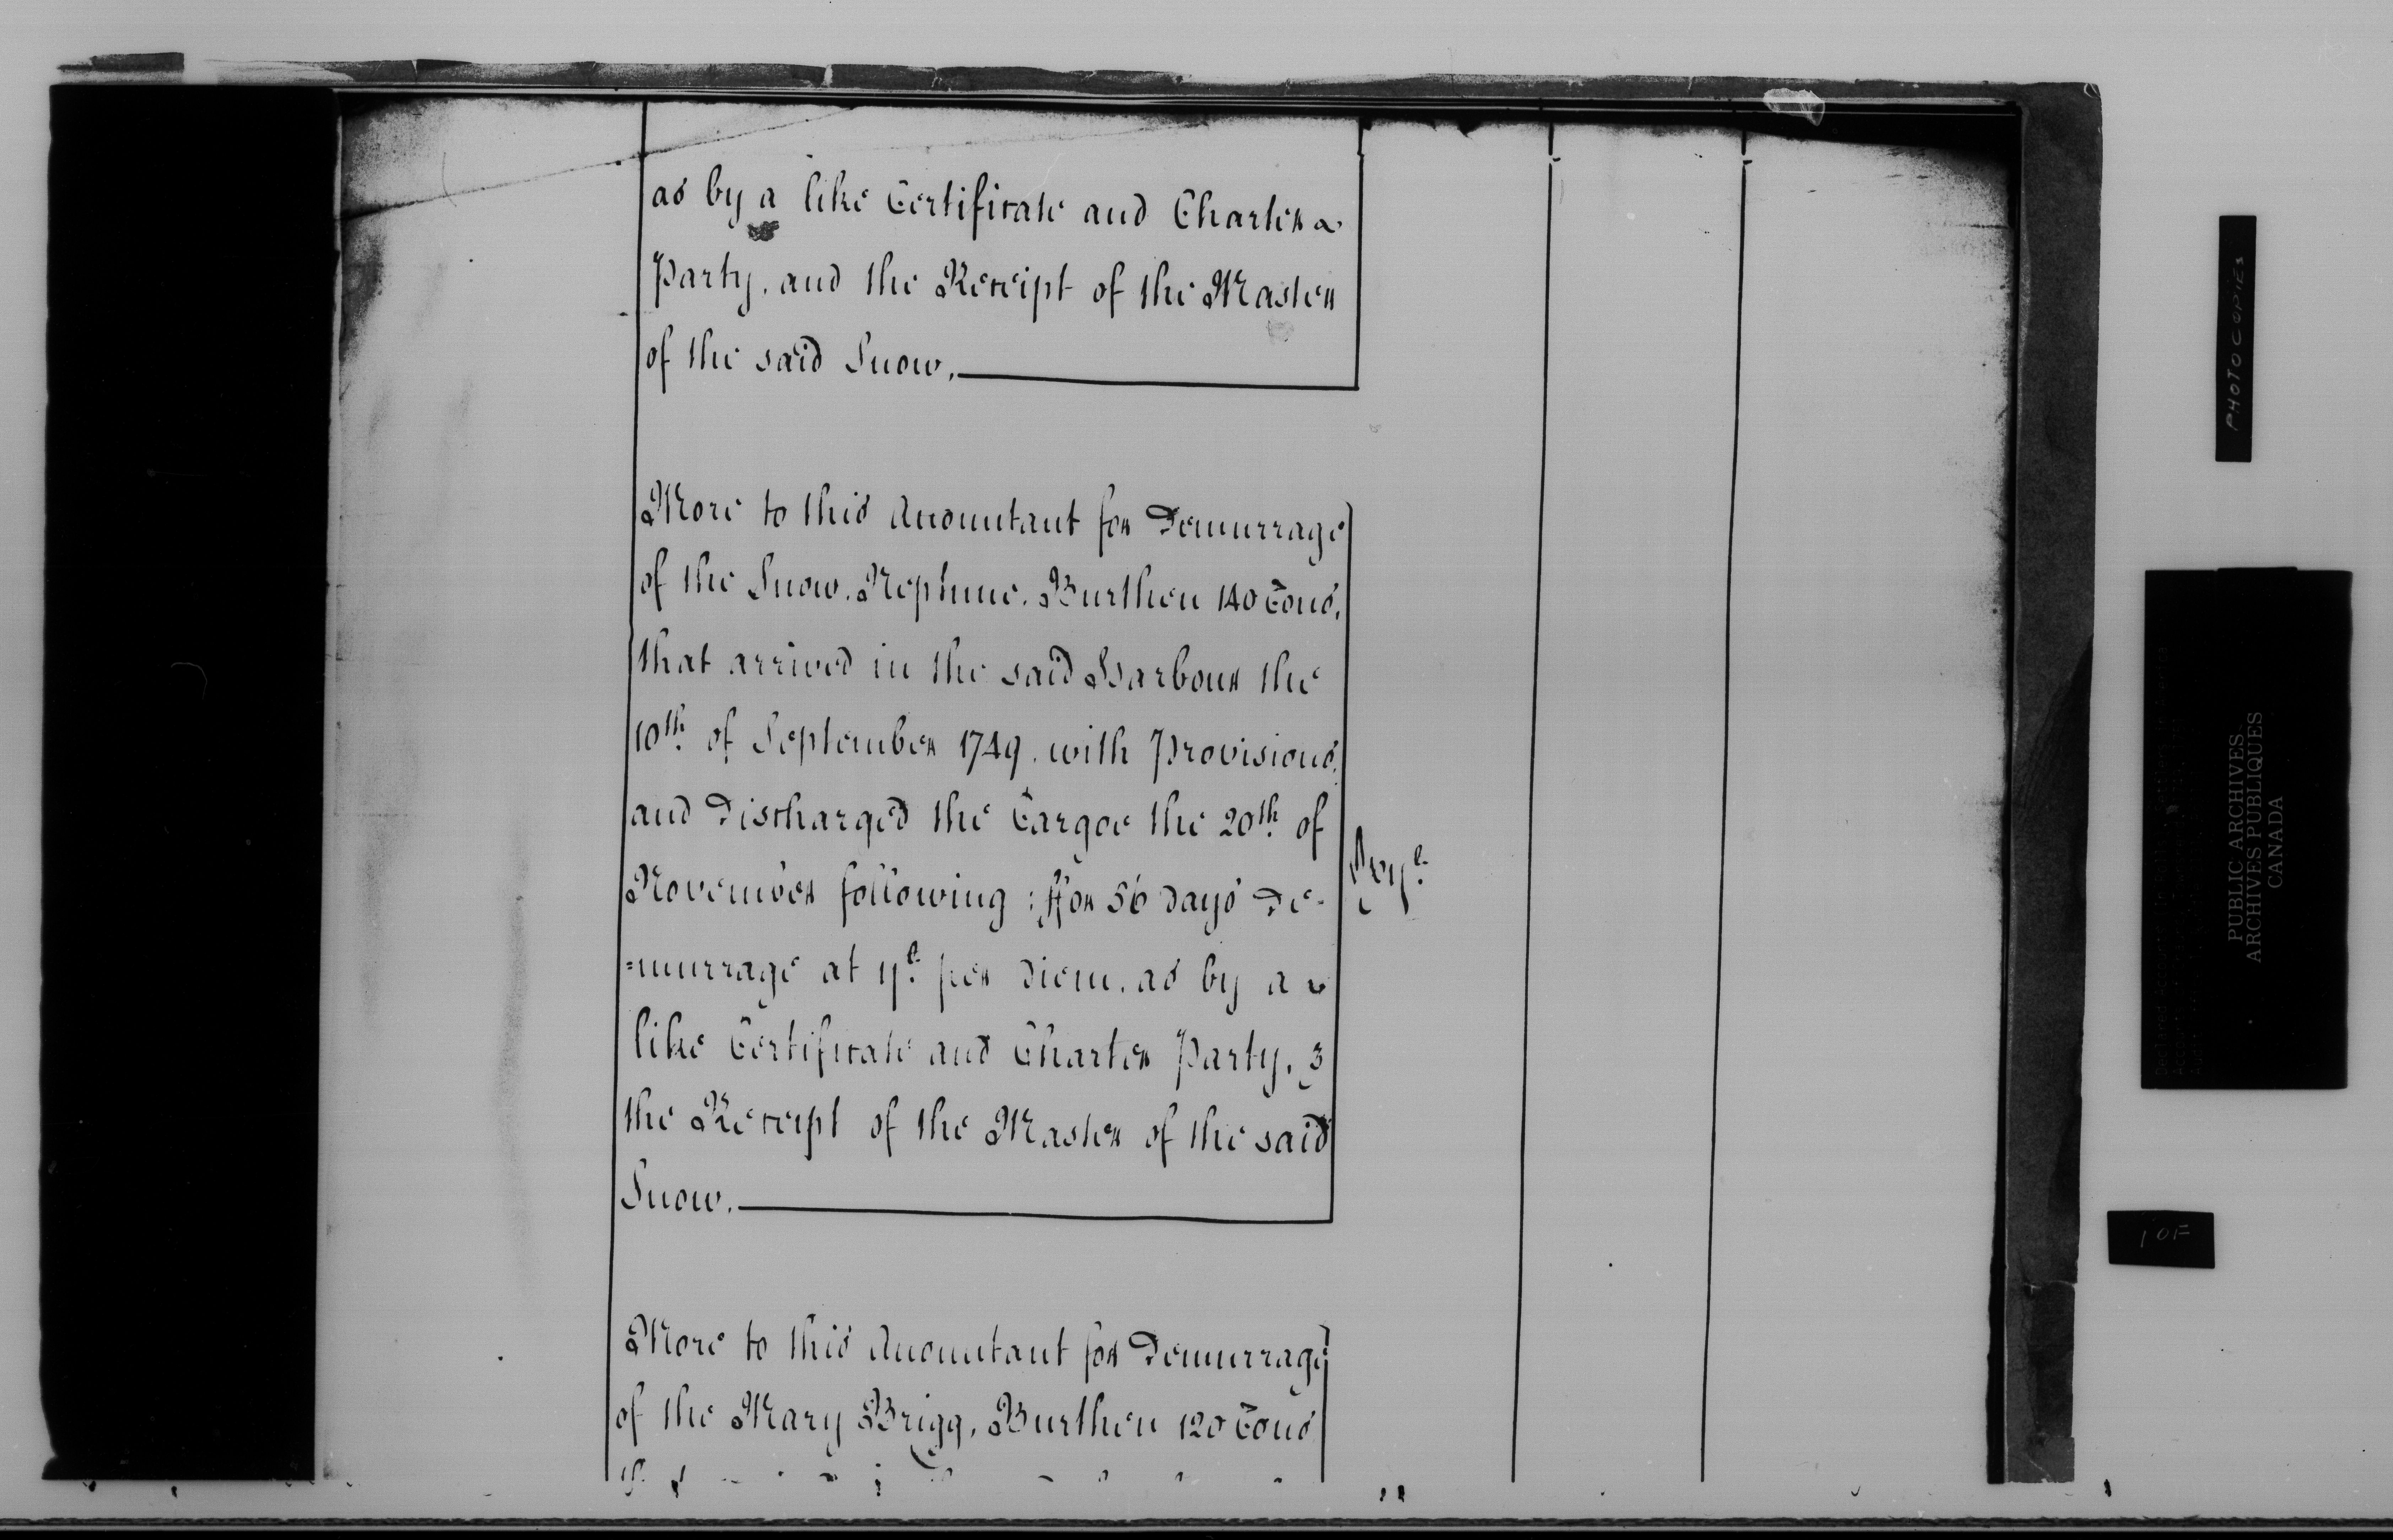 as by a like Certificate and Charter
Party, and the Receipt of the Master
of the said Snow.
More to this Accomptant for Demurrage
of the Snow, Neptune, Burthen 140 Tons,
that arrived in the said Harbour the
10th. of September 1749. with Provisions,
and Discharged the Cargoe the 20th. of
November following: ffor 56 days De-
=murrage at ijli. per Diem. as by a
like Certificate and Charter Party, &
the Receipt of the Master of the said
Snow.
cxijli.
More to this Accomptant for Demurrage
of the Mary Brigg, Burthen 120 Tons
PHOTOCOPIES
PUBLIC ARCHIVES
ARCHIVES PUBLIQUES
CANADA